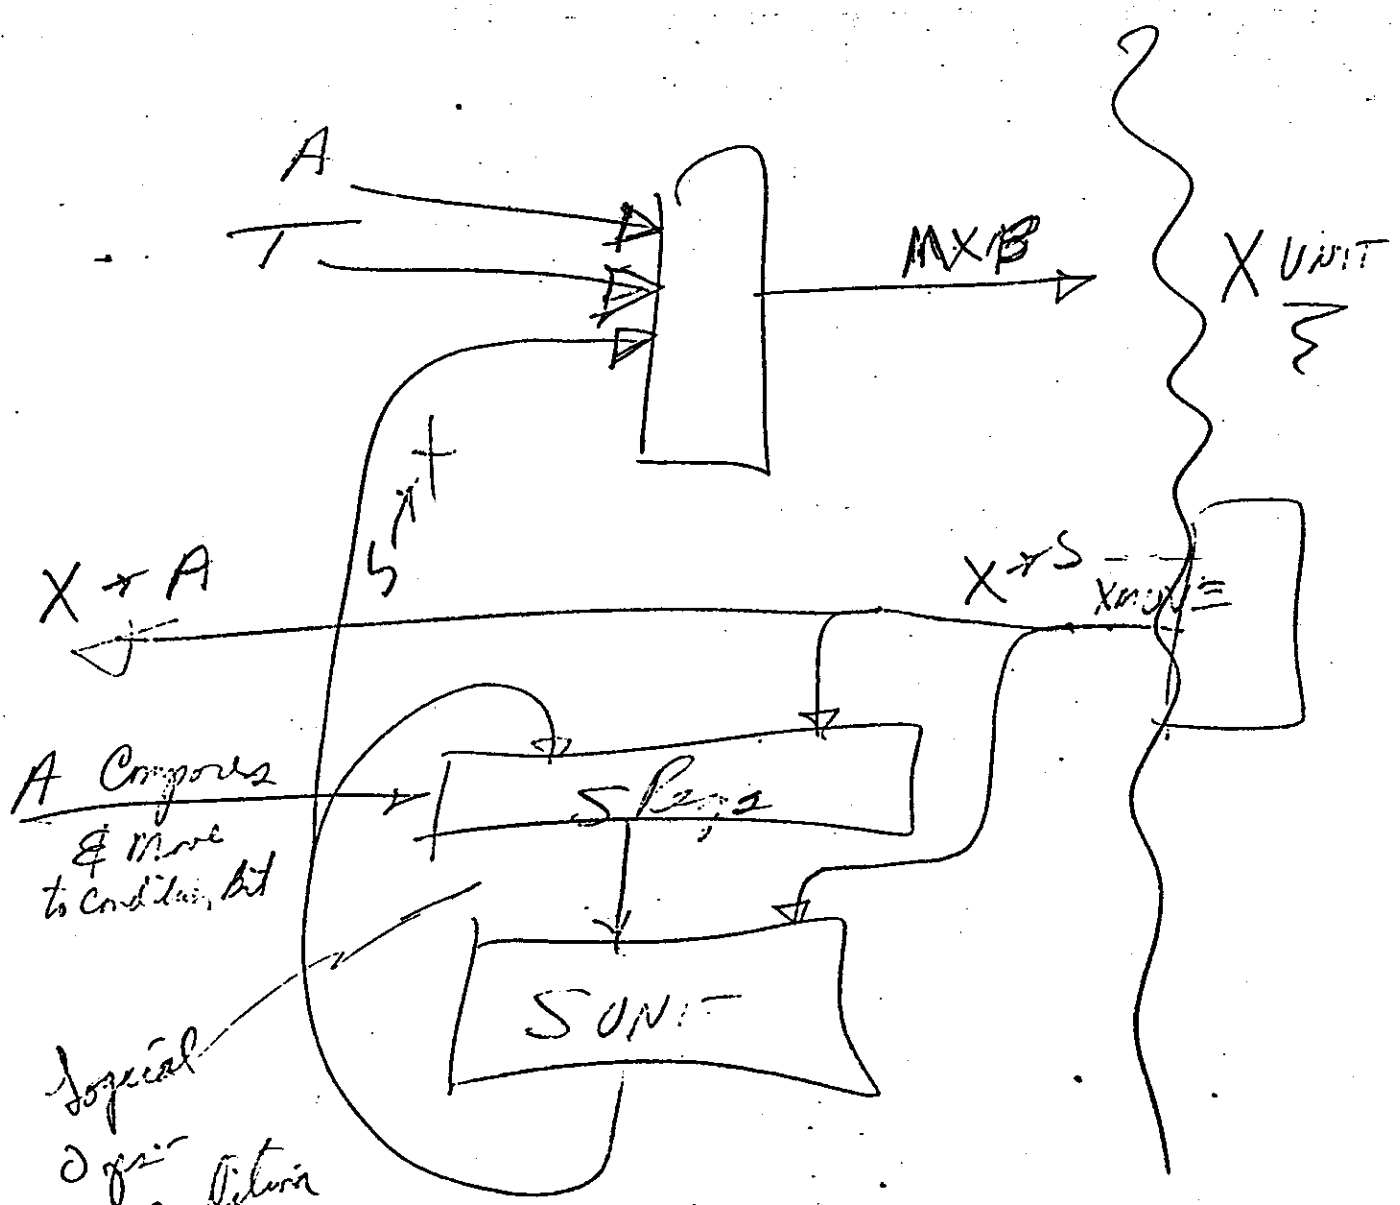 A
T
MXB
X UNIT
X → A
X → S
A Compares
& Move
to condition Bit
S Regs
S UNIT
Logical
Ops